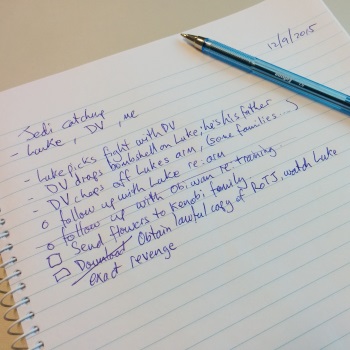 12/9/2015
Jedi catchup
- Luke, DV, me
- Luke picks fight with DV
- DV drops bombshell on Luke; he's his father
- DV chops off Lukes arm, (some families....)
o follow up with Luke re. arm
o follow up with Obi wan re. training
□ Send flowers to Kenobi family
□ Download Obtain lawful copy of RoTJ, watch Luke
exact revenge